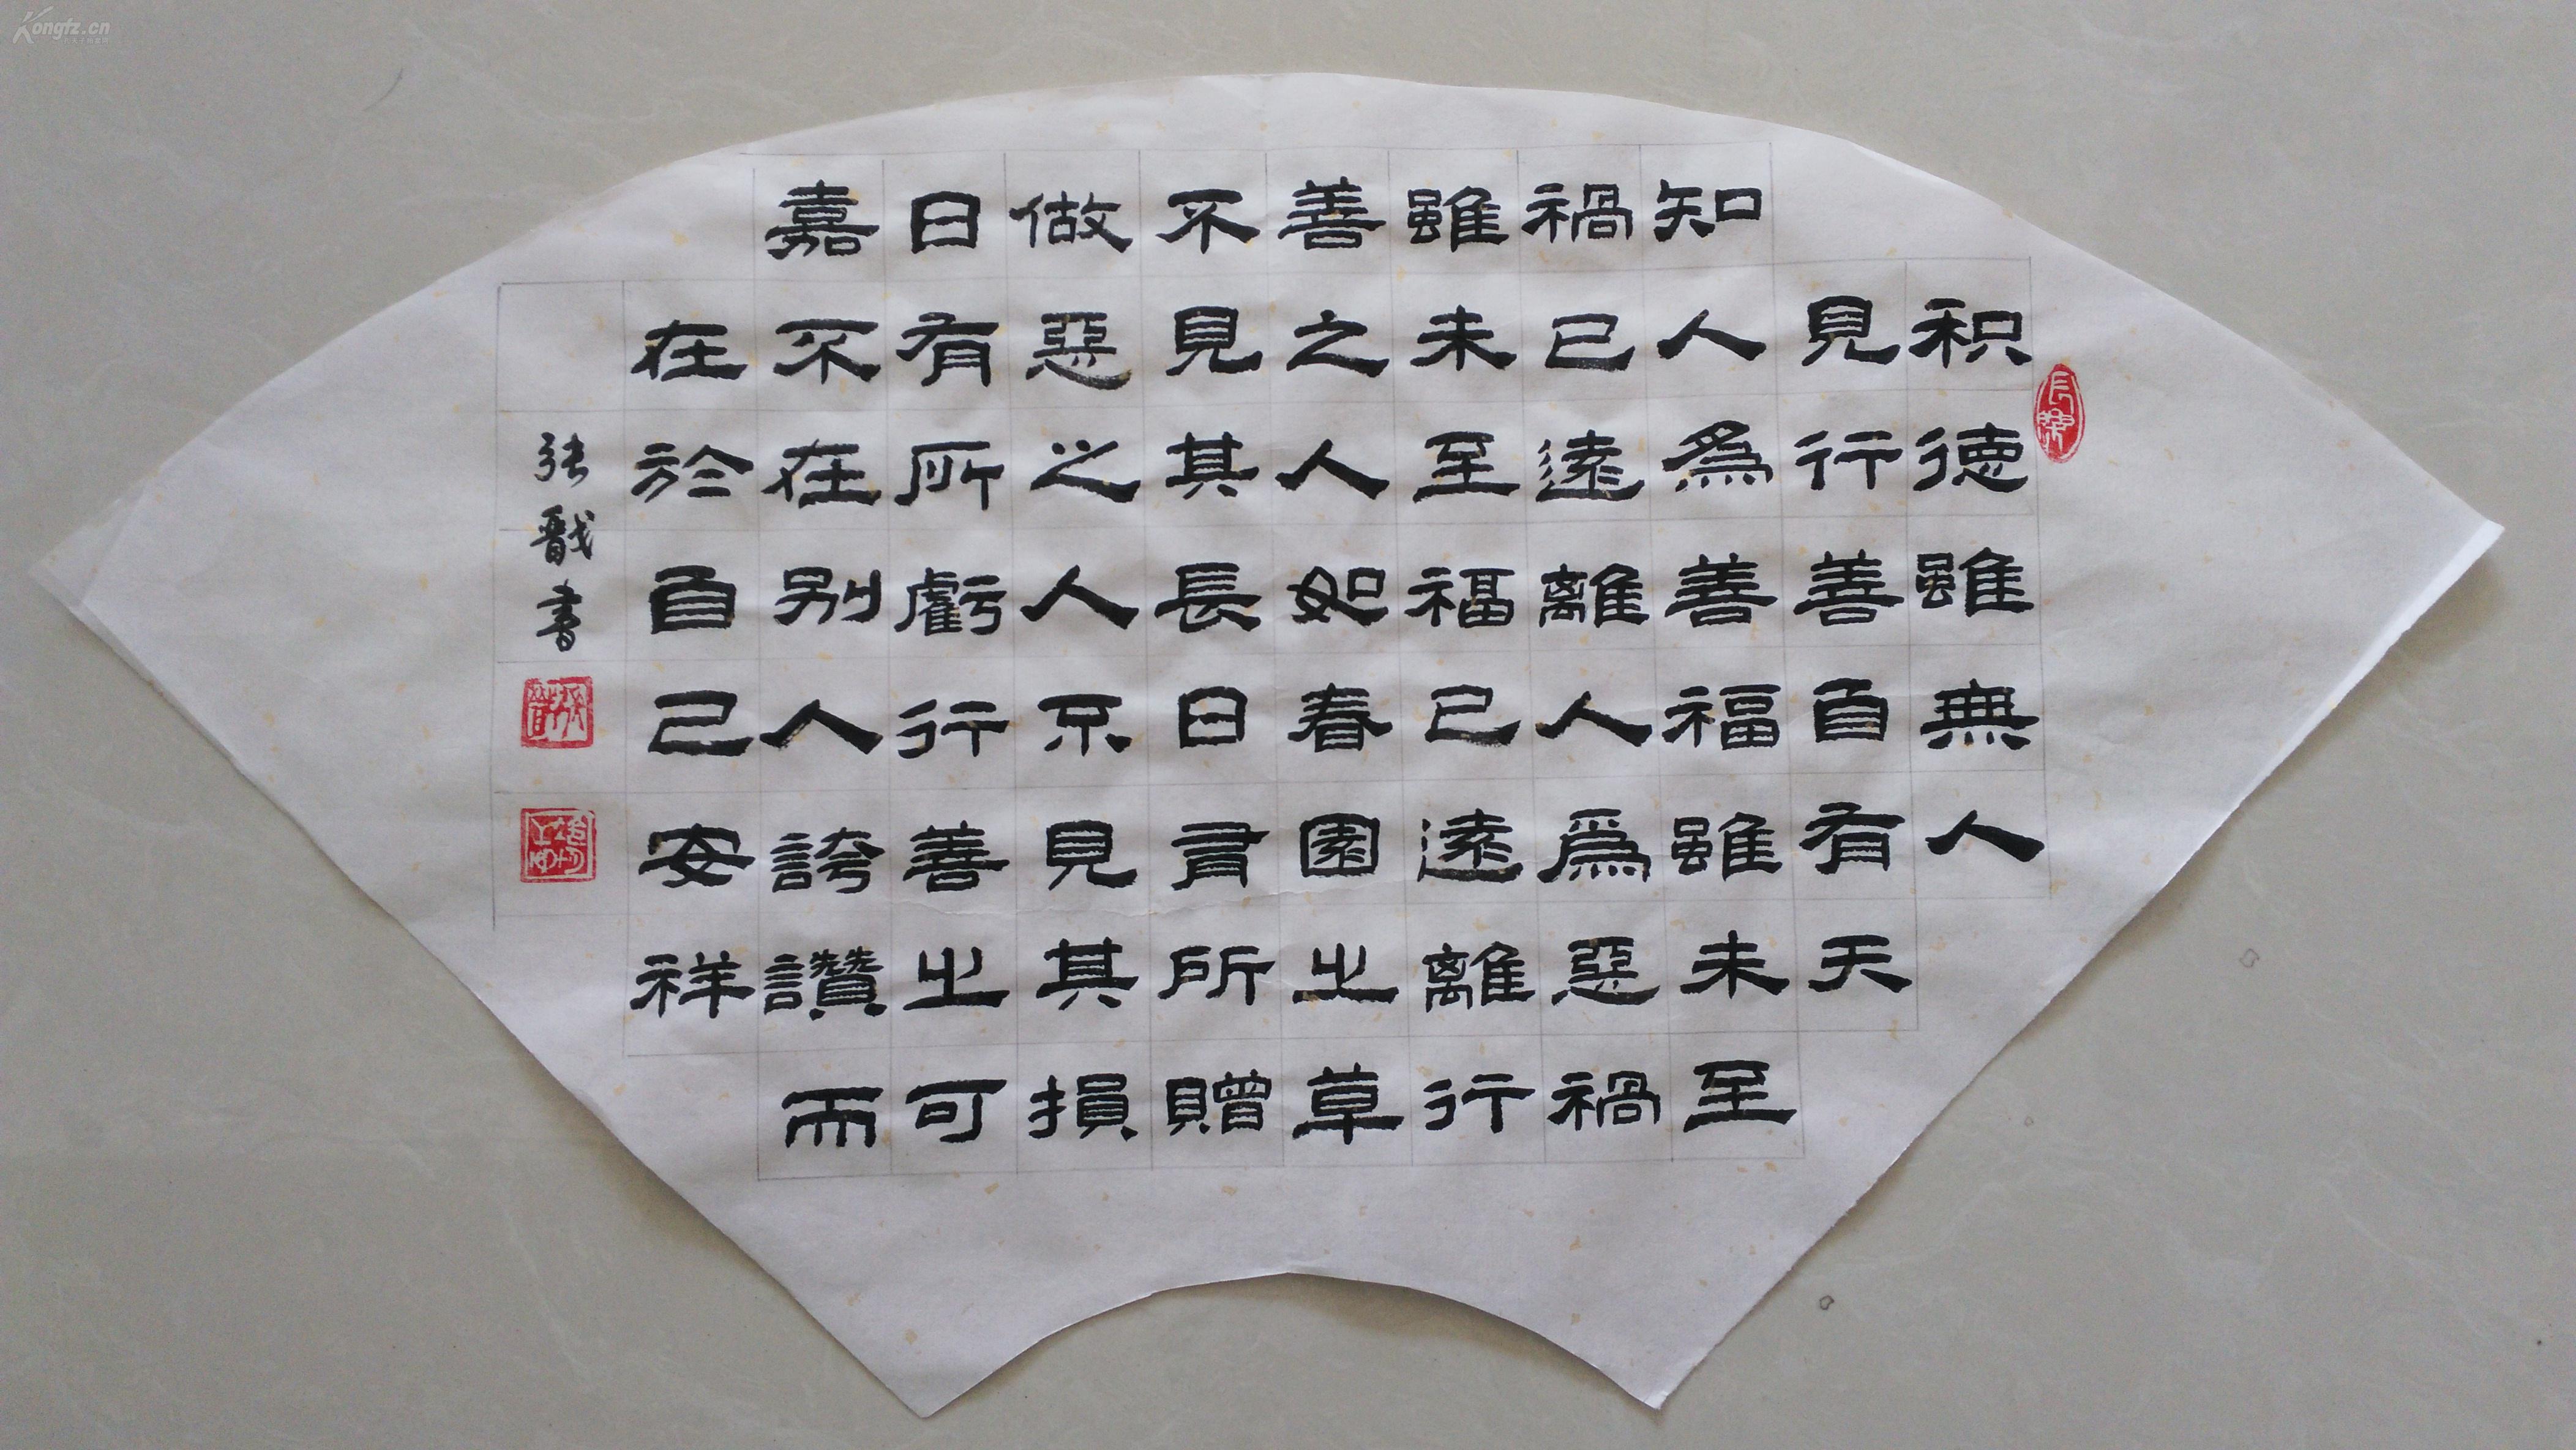 积德雖無人
見行善自有天
知人為善福雖未至
禍已遠離人爲惡禍
雖未至福已遠離行
善之人如春園之草
不見其長日有所贈
做惡之人不見其損
日有所虧行善之可
嘉不在别人誇讚而
在於自己安祥
張戩書
Kongfz.cn